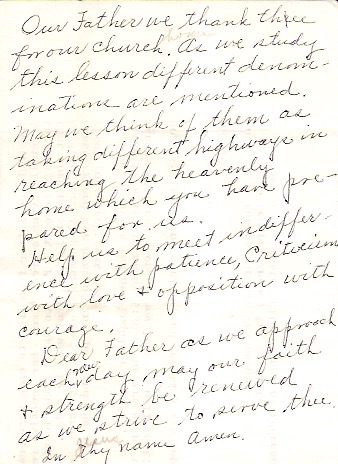 Our Father we thank three
for our church. As we study
this lesson different denom-
inations are mentioned.
May we think of them as
taking different highways in
reaching the heavenly
home which you have pre-
pared for us.
Help us to meet indiffer-
ence with patience, Criticism
with love & opposition with
courage.
Dear Father as we approach
each new day may our faith
& strength be renewed
as we strive to serve thee.
In thy name Amen.